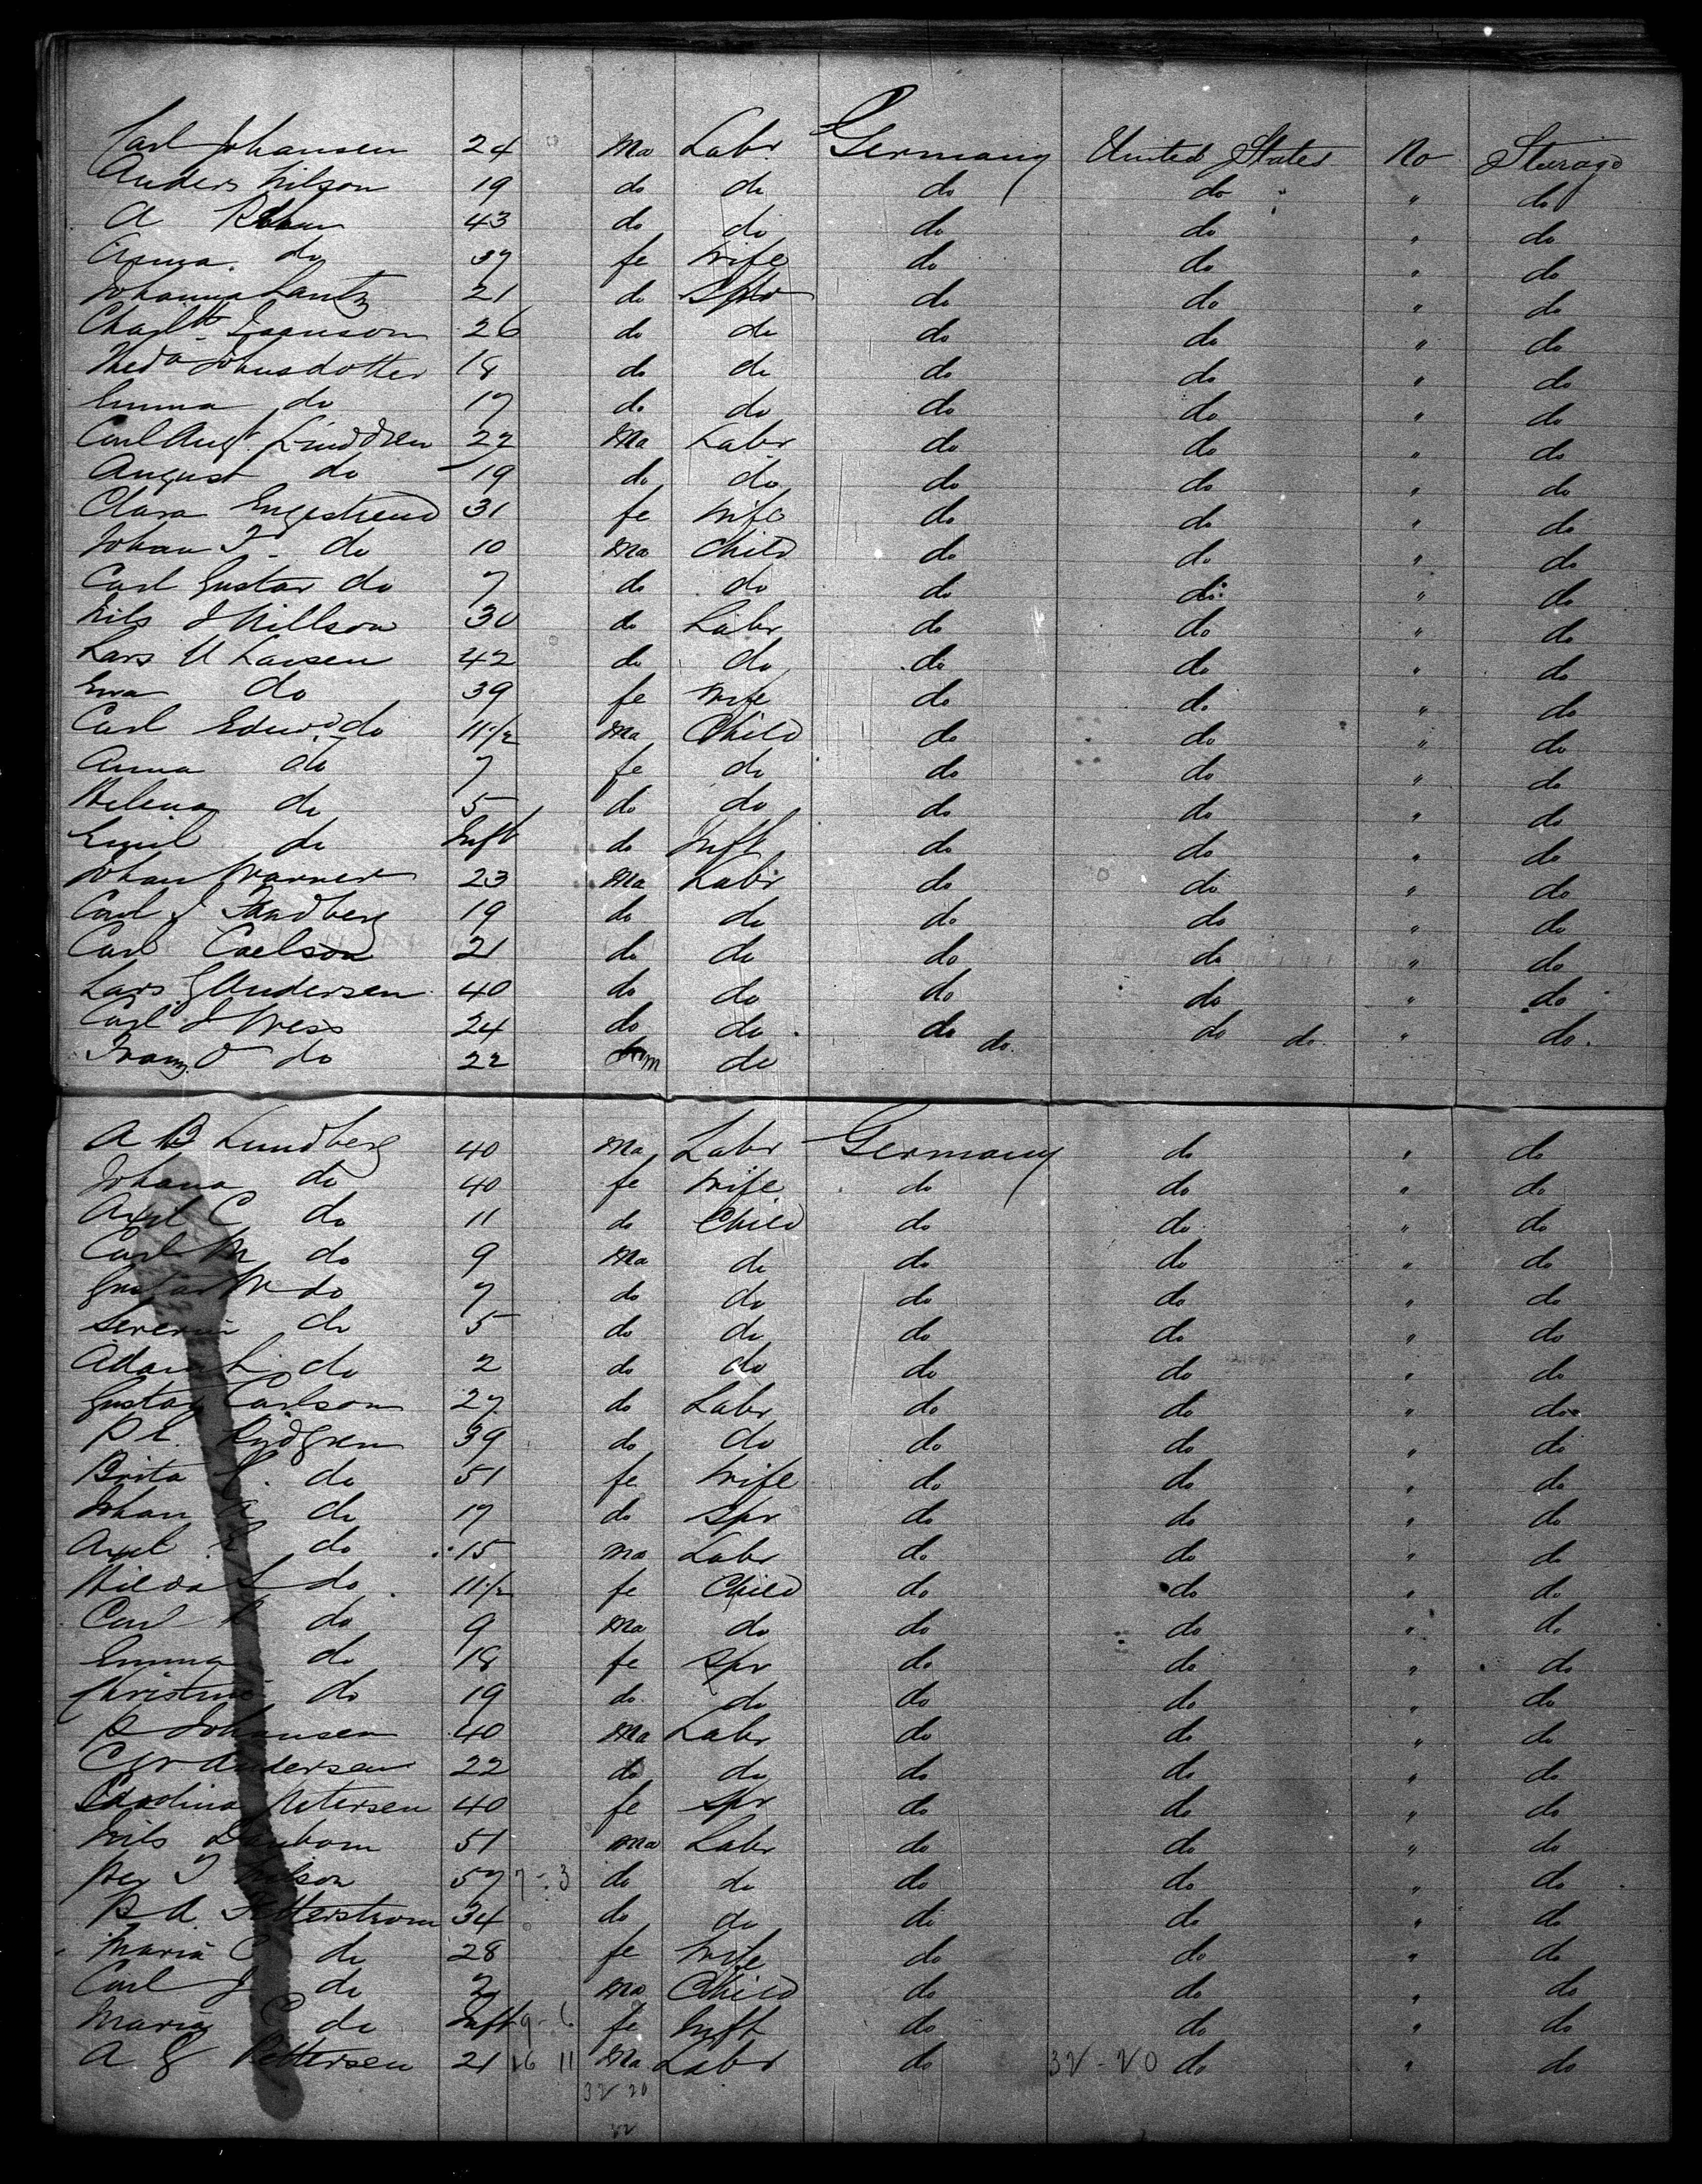 Carl Johansen 24 Ma Labr Germany United States No Steerage
Anders Nilson 19 do do do do " do
A 43 do do do do " do
Anna do 37 fe wife do do " do
Johanna Lantz 21 do Spr do do " do
Charltt 26 do do do do " do
Heda Johnsdotter 18 do do do do " do
Emma do 17 do do do do " do
Carl Aug. Lindgren 22 Ma Labr do do " do
August do 19 do do do do " do
Clara 31 fe wife do do " do
Johan F. do 10 Ma Child do do " do
Carl Gustav do 7 do do do do " do
Nils J Nillson 30 do Labr do do " do
Lars U Larsen 42 do do do do " do
Eva do 39 fe wife do do " do
Carl Edwd. do 11 1/2 Ma Child do do " do
Anna do 7 fe do do do " do
Helena do 5 do do do do " do
Emil do Inft do Inft do do " do
Johan Warner 23 Ma Labr do do " do
Carl J Sandberg 19 do do do do " do
Carl Carlson 21 do do do do " do
Lars G Andersen 40 do do do do " do
Carl J Wess 24 do do do do " do
Franz O do 22 m do do do
A B Lundberg 40 Ma Labr Germany do " do
Johana do 40 fe wife do do " do
Axel C do 11 do Child do do " do
Carl M do 9 Ma do do do " do
Gustav W do 7 do do do do " do
Severin do 5 do do do do " do
Adam L do 2 do do do do " do
Gustav Carlson 27 do Labr do do " do
P E. Rydgren 39 do do do do " do
Brita C. do 51 fe wife do do " do
Johan do 17 do Spr do do " do
Axel E do 15 Ma Labr do do " do
Hilda L do 11 1/2 fe Child do do " do
Carl do 9 Ma do do do " do
Emma do 18 fe Spr do do " do
Christine do 19 do do do do " do
P Johansen 40 Ma Labr do do " do
C W Andersen 22 do do do do " do
Carolina Petersen 40 fe Spr do do " do
Nils Danbom 51 Ma Labr do do " do
Per T Nilson 57 7-3 do do do do " do
P A. Fetterstrom 34 do do do do " do
Maria C do 28 fe wife do do " do
Carl J do 2 Ma Child do do " do
Maria C do Inft 9-6 fe Inft do do " do
A G Pettersen 21 16 11 Ma Labr do 32-20 do " do
32 20